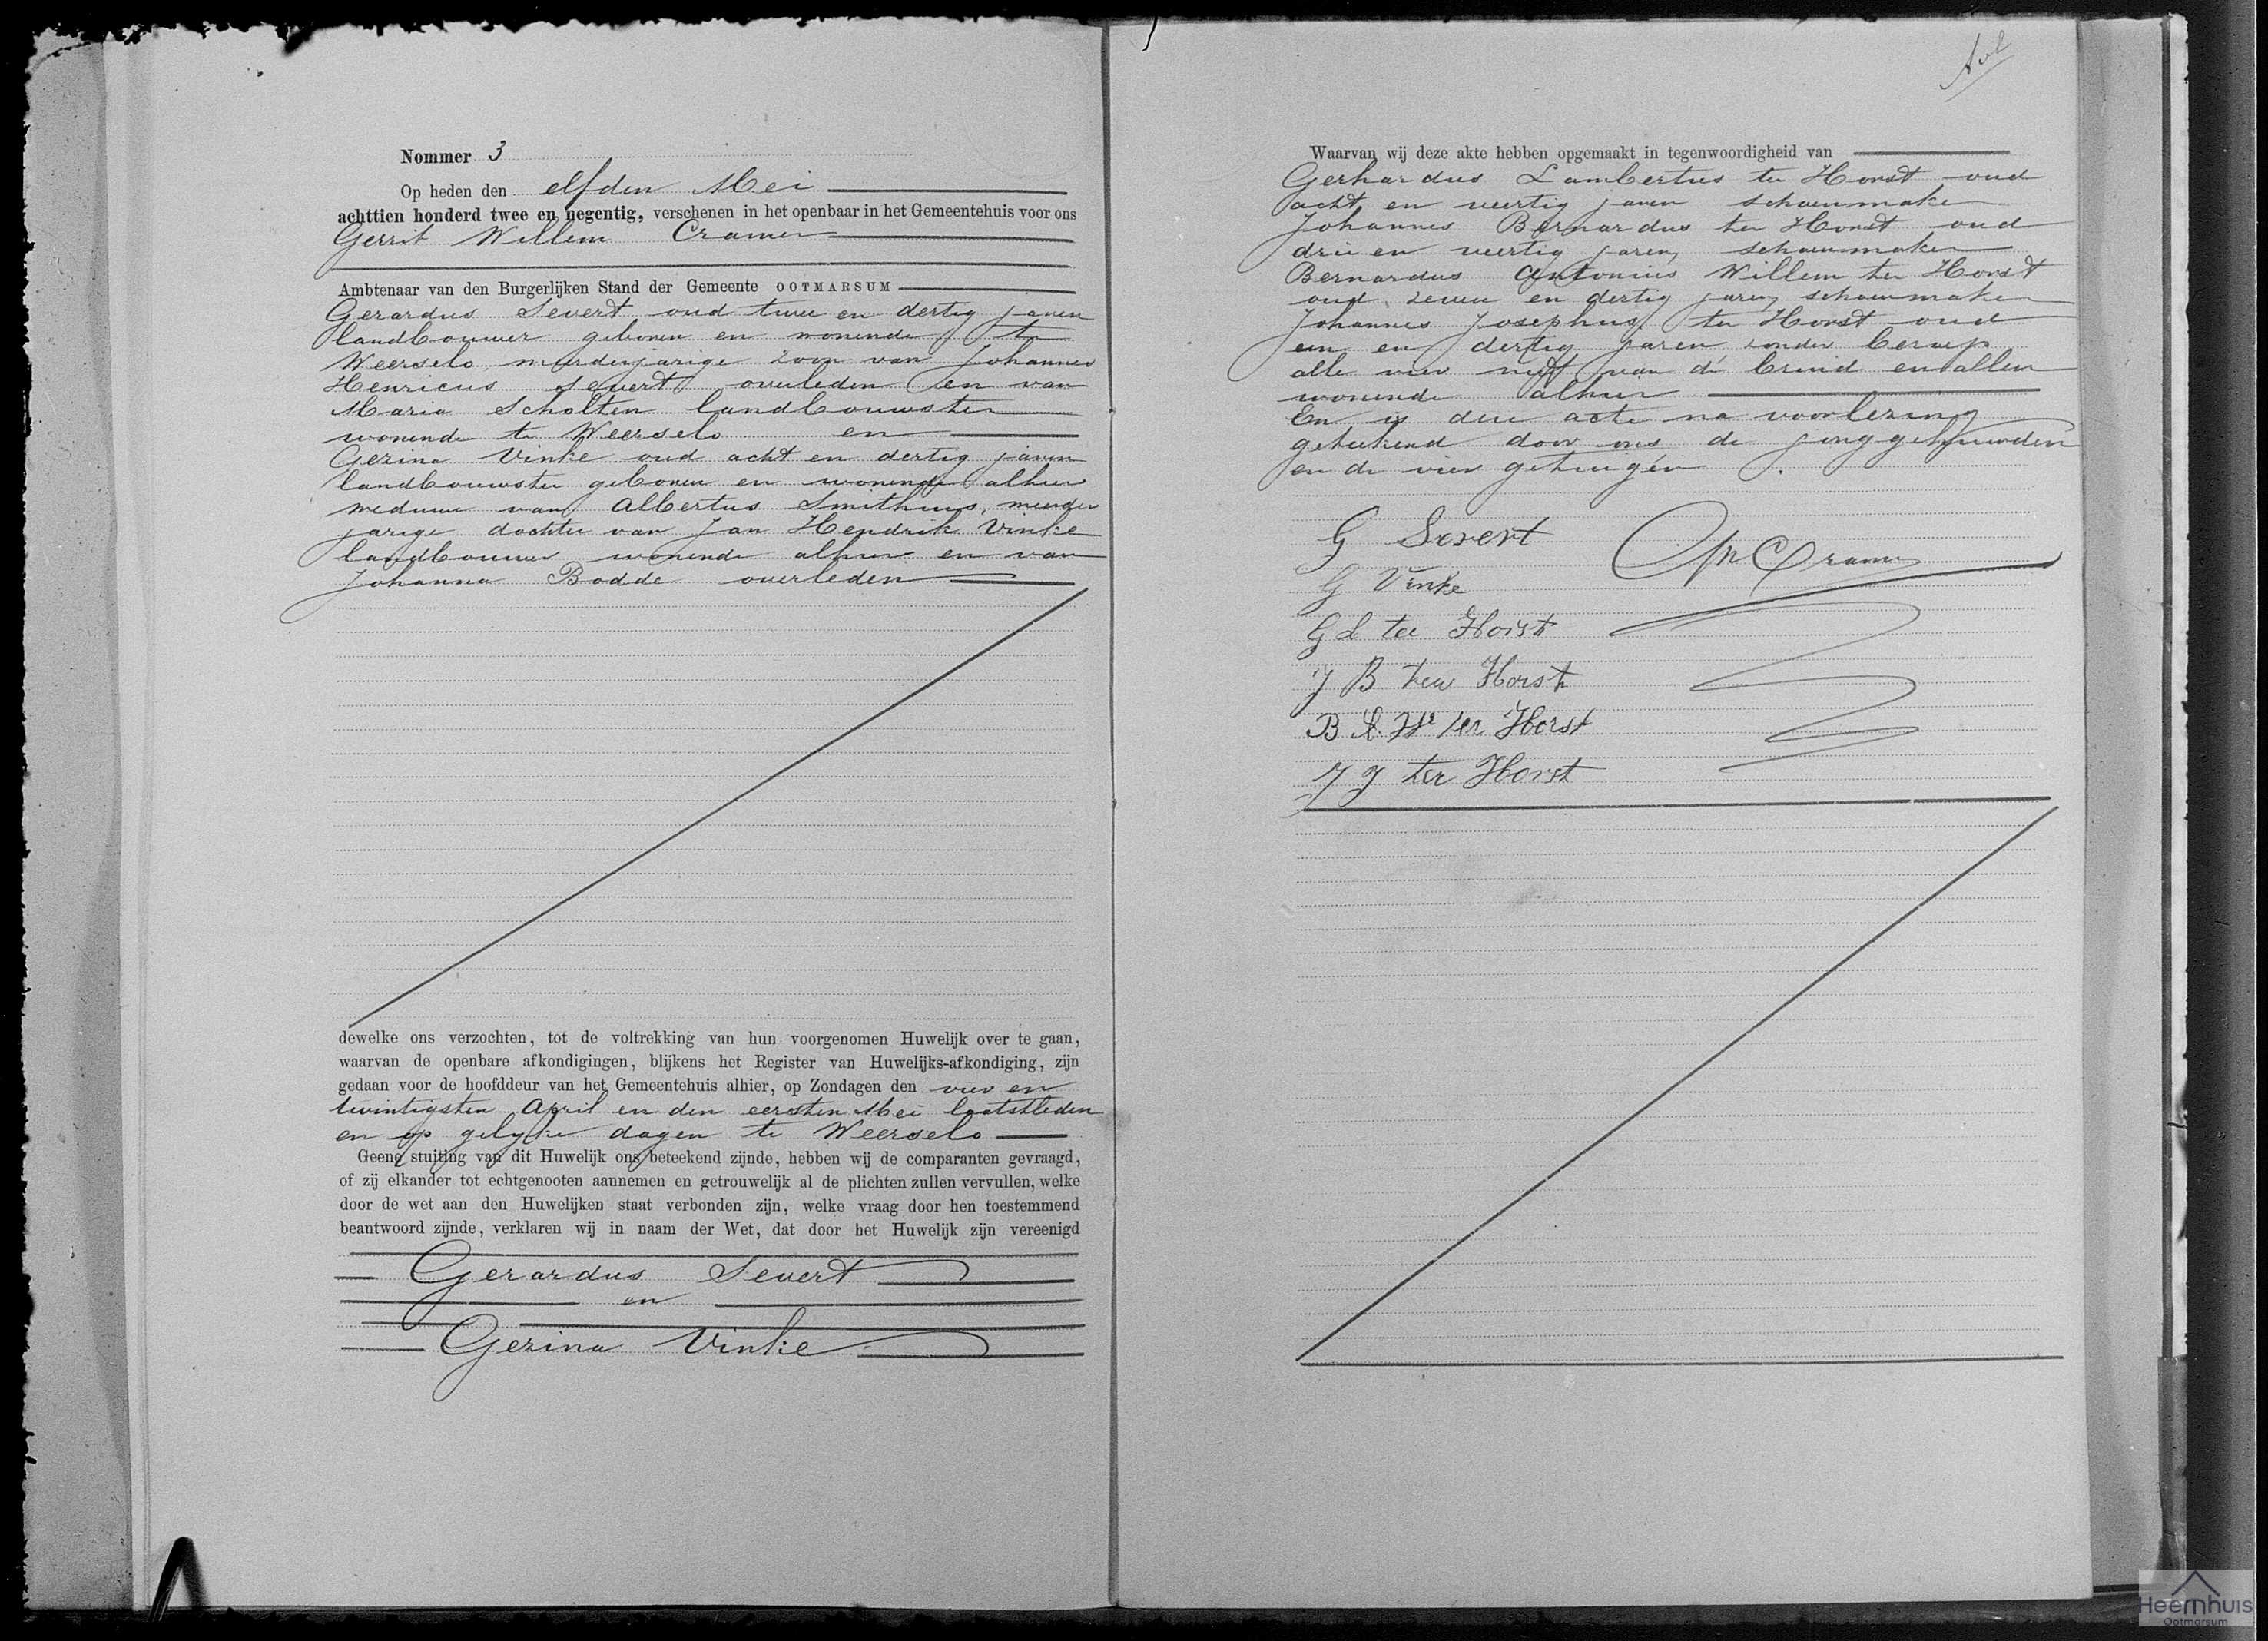 Nommer 3
Op heden den elfden Mei
achttien honderd twee en negentig, verschenen in het openbaar in het Gemeentehuis voor ons
Gerrit Willem Cramer
Ambtenaar van den Burgerlijken Stand der Gemeente OOTMARSUM
Gerardus Severt oud twee en dertig jaren
landbouwer geboren en wonende te
Weerselo meerderjarige zoon van Johannes
Henricus Severt overleden en van
Maria Scholten landbouwster
wonende te Weerselo en
Gezina Vinke oud acht en dertig jaren
landbouwster geboren en wonende alhier
weduwe van Albertus Smithuis, meerder
jarige dochter van Jan Hendrik Vinke
landbouwer wonende alhier en van
Johanna Bodde overleden
dewelke ons verzochten, tot de voltrekking van hun voorgenomen Huwelijk over te gaan,
waarvan de openbare afkondigingen, blijkens het Register van Huwelijks-afkondiging, zijn
gedaan voor de hoofddeur van het Gemeentehuis alhier, op Zondagen den vier en
twintigsten April en den eersten Mei laatstleden
en op gelyke dagen te Weerselo
Geene stuiting van dit Huwelijk ons beteekend zijnde, hebben wij de comparanten gevraagd,
of zij elkander tot echtgenooten aannemen en getrouwelijk al de plichten zullen vervullen, welke
door de wet aan den Huwelijken staat verbonden zijn, welke vraag door hen toestemmend
beantwoord zijnde, verklaren wij in naam der Wet, dat door het Huwelijk zijn vereenigd
Gerardus Severt
en
Gezina Vinke
Waarvan wij deze akte hebben opgemaakt in tegenwoordigheid van
Gerhardus Lambertus ter Horst oud
acht en veertig jaren schoenmaker
Johannes Bernardus ter Horst oud
drie en veertig jaren, schoenmaker
Bernardus Antonius Willem ter Horst
oud zeven en dertig jaren, schoenmaker
Johannes Josephus ter Horst oud
een en dertig jaren, zonder beroep
alle vier neef van de bruid en allen
wonende alhier
En is deze acte na voorlezing
geteekend door ons de jonggehuwden
en de vier getuigen.
G Severt
GW Cramer
G Vinke
G L ter Horst
J B ter Horst
B A W ter Horst
J J ter Horst
Heemhuis
Ootmarsum